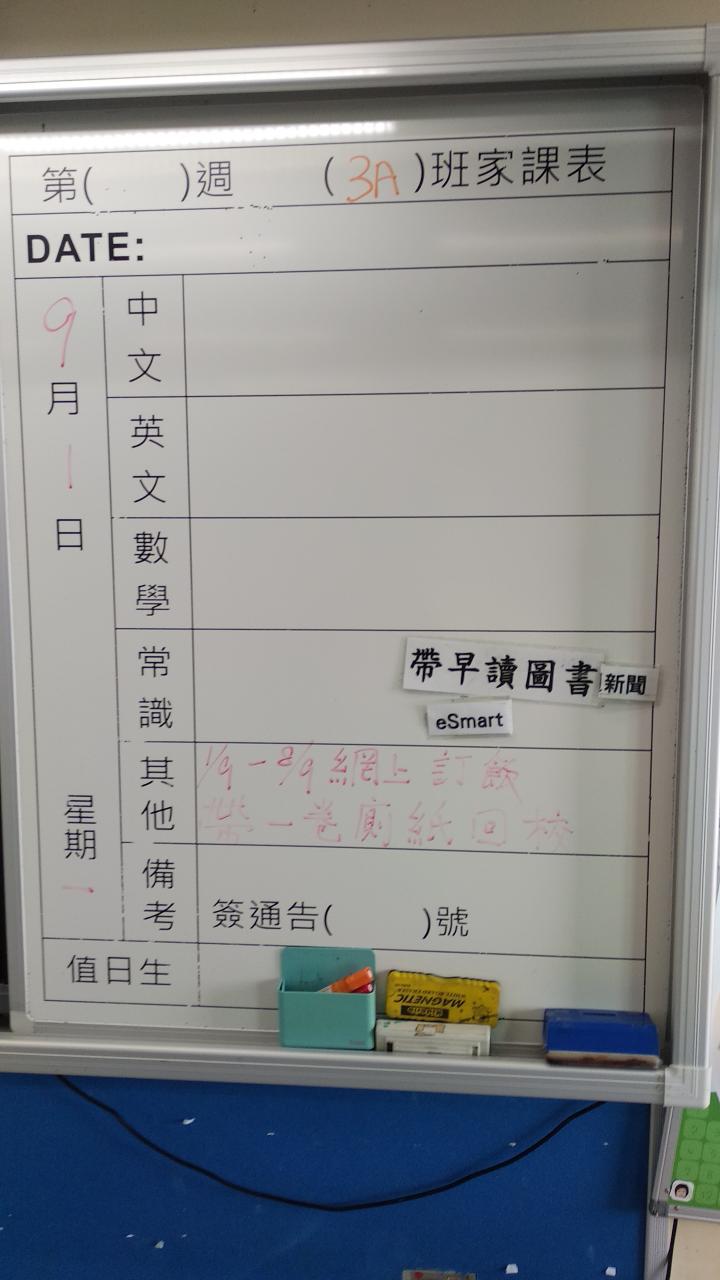 第( )週 (3A)班家課表
DATE:
9月1日
星期一
中文
英文
數學
常識
帶早讀圖書
新聞
eSmart
其他
1/9-8/9 網上訂飯
帶一卷廁紙回校
備考
簽通告( )號
值日生
MAGNETIC
WHITE BOARD ERASER